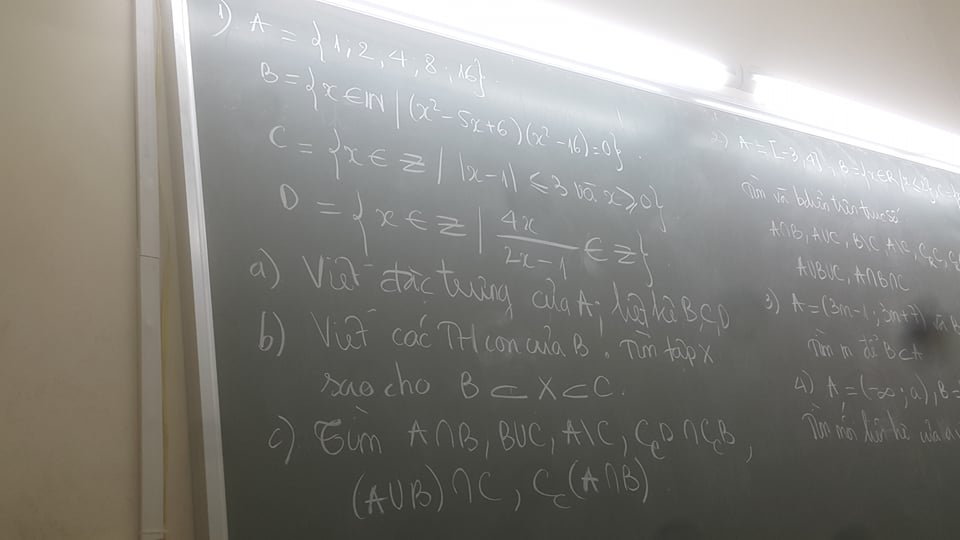 1) A = {1; 2, 4; 8; 16}.
B = {x ∈ IN | (x² - 5x + 6)(x² - 16) = 0}.
C = {x ∈ Z | |x - 1| ≤ 3 và x ≥ 0}
D = {x ∈ Z | 4x/(2x - 1) ∈ Z}
a) Viết đặc trưng của A; liệt kê B, C, D
b) Viết các TH con của B. Tìm tập X
sao cho B ⊂ X ⊂ C.
c) Tìm A∩B, B∪C, A\C, C_C D ∩ C_C B,
(A∪B)∩C, C_C (A∩B)
2) A = [-3, 4], B = {x ∈ R |
Tìm và bdiễn trên trục số
A∩B, A∪C, B\C, A\C,
A∪B∪C, A∩B∩C
3) A = (3m - 1; 3m + 7) và
Tìm m để B ⊂ A
4) A = (-∞; a), B =
Tìm mối liên hệ của a